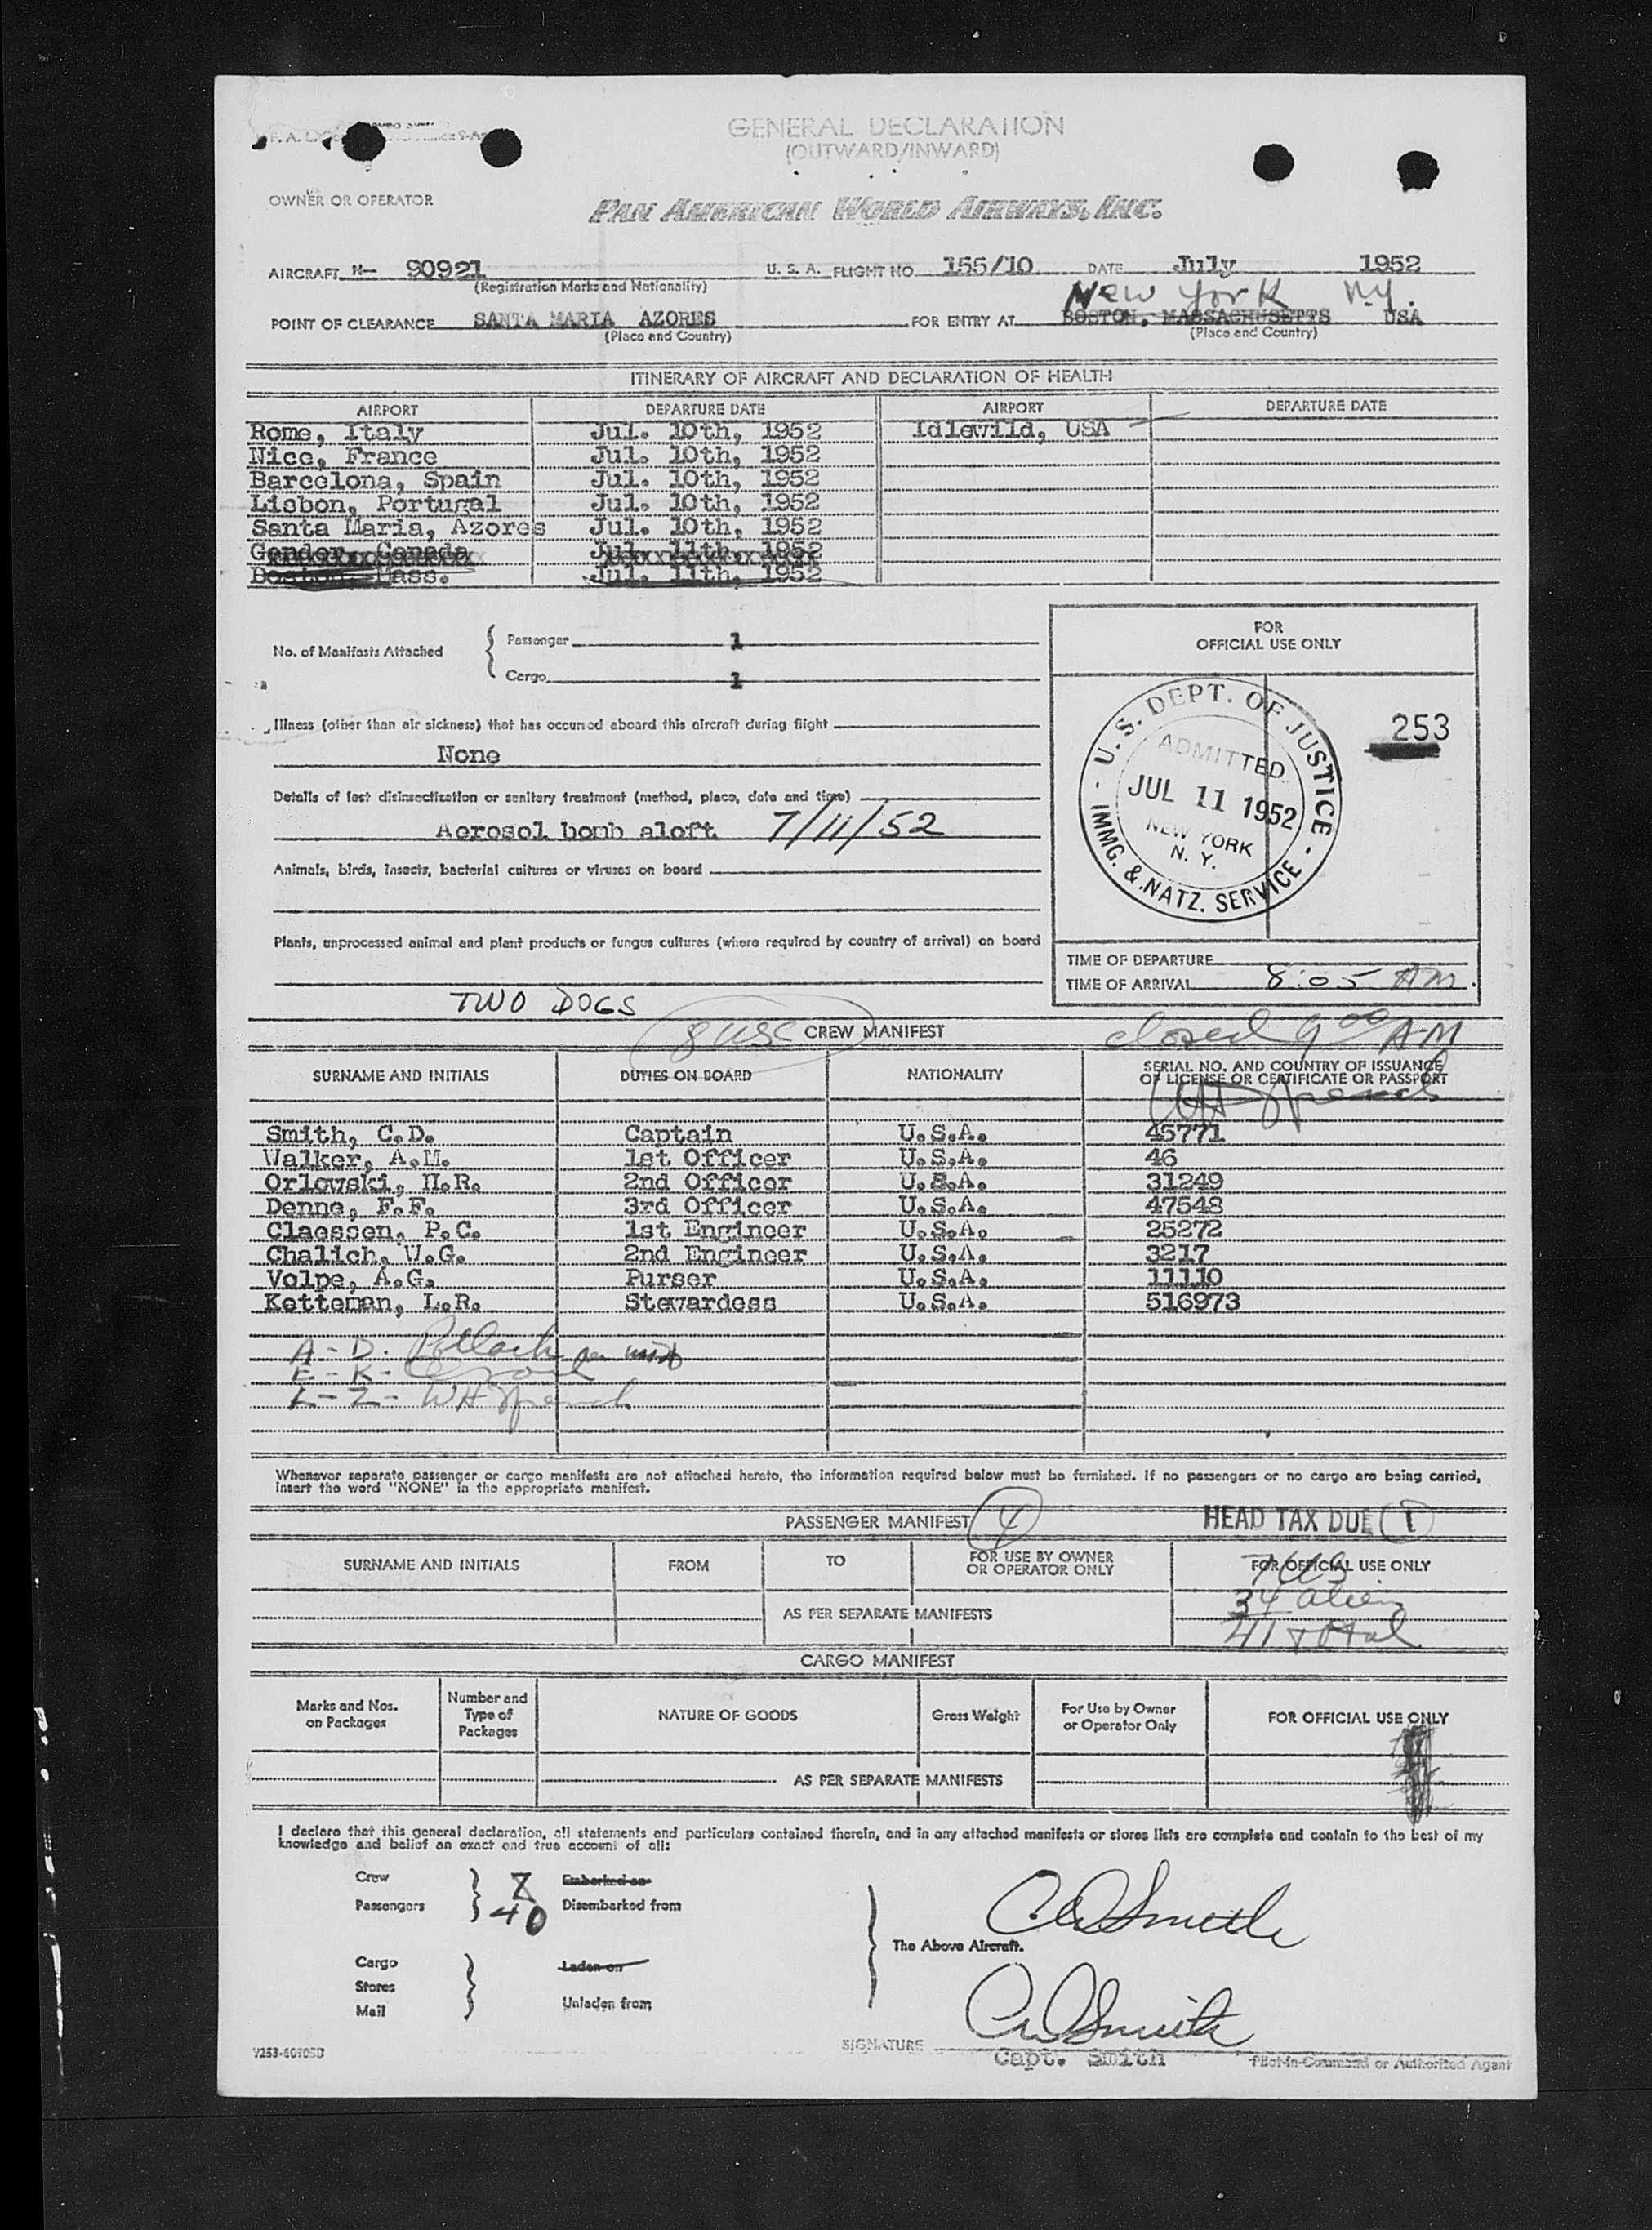 GENERAL DECLARATION
(OUTWARD/INWARD)
OWNER OR OPERATOR PAN AMERICAN WORLD AIRWAYS, INC.
AIRCRAFT N- 90921 U. S. A. FLIGHT NO 155/10 DATE July 1952
(Registration Marks and Nationality)
New York N.Y.
POINT OF CLEARANCE SANTA MARIA AZORES FOR ENTRY AT BOSTON, MASSACHUSETTS USA
(Place and Country) (Place and Country)
ITINERARY OF AIRCRAFT AND DECLARATION OF HEALTH
AIRPORT DEPARTURE DATE AIRPORT DEPARTURE DATE
Rome, Italy Jul. 10th, 1952 Idlewild, USA
Nice, France Jul. 10th, 1952
Barcelona, Spain Jul. 10th, 1952
Lisbon, Portugal Jul. 10th, 1952
Santa Maria, Azores Jul. 10th, 1952
Gander, Canada Jul. 11th, 1952
Boston, Mass. Jul. 11th, 1952
No. of Manifests Attached
Passenger 1
Cargo 1
FOR
OFFICIAL USE ONLY
Illness (other than air sickness) that has occurred aboard this aircraft during flight
None
Details of last disinsectization or sanitary treatment (method, place, date and time)
Aerosol bomb aloft 7/11/52
Animals, birds, insects, bacterial cultures or viruses on board
Plants, unprocessed animal and plant products or fungus cultures (where required by country of arrival) on board
TWO DOGS
U.S. DEPT. OF JUSTICE
ADMITTED
JUL 11 1952
NEW YORK
N. Y.
IMMG. & NATZ. SERVICE
253
TIME OF DEPARTURE
TIME OF ARRIVAL 8:05 AM
8 USC CREW MANIFEST closed 9 00 AM
SURNAME AND INITIALS DUTIES ON BOARD NATIONALITY SERIAL NO. AND COUNTRY OF ISSUANCE
OF LICENSE OR CERTIFICATE OR PASSPORT
Smith, C.D. Captain U.S.A. 45771
Walker, A.M. 1st Officer U.S.A. 46
Orlowski, H.R. 2nd Officer U.S.A. 31249
Denne, F.F. 3rd Officer U.S.A. 47548
Claessen, P.C. 1st Engineer U.S.A. 25272
Chalich, W.G. 2nd Engineer U.S.A. 3217
Volpe, A.G. Purser U.S.A. 11110
Ketteman, L.R. Stewardess U.S.A. 516973
A - D.
E - K -
L - Z -
Whenever separate passenger or cargo manifests are not attached hereto, the information required below must be furnished. If no passengers or no cargo are being carried,
insert the word "NONE" in the appropriate manifest.
PASSENGER MANIFEST 4 HEAD TAX DUE 1
SURNAME AND INITIALS FROM TO FOR USE BY OWNER
OR OPERATOR ONLY FOR OFFICIAL USE ONLY
7 US
34 alien
41 total
AS PER SEPARATE MANIFESTS
CARGO MANIFEST
Marks and Nos.
on Packages
Number and
Type of
Packages
NATURE OF GOODS
Gross Weight
For Use by Owner
or Operator Only
FOR OFFICIAL USE ONLY
AS PER SEPARATE MANIFESTS
I declare that this general declaration, all statements and particulars contained therein, and in any attached manifests or stores lists are complete and contain to the best of my
knowledge and belief an exact and true account of all:
Crew 8 Embarked on
Passengers 40 Disembarked from
CD Smith
The Above Aircraft.
Cargo Laden on
Stores
Mail Unladen from
CD Smith
SIGNATURE Capt. Smith Pilot-in-Command or Authorized Agent